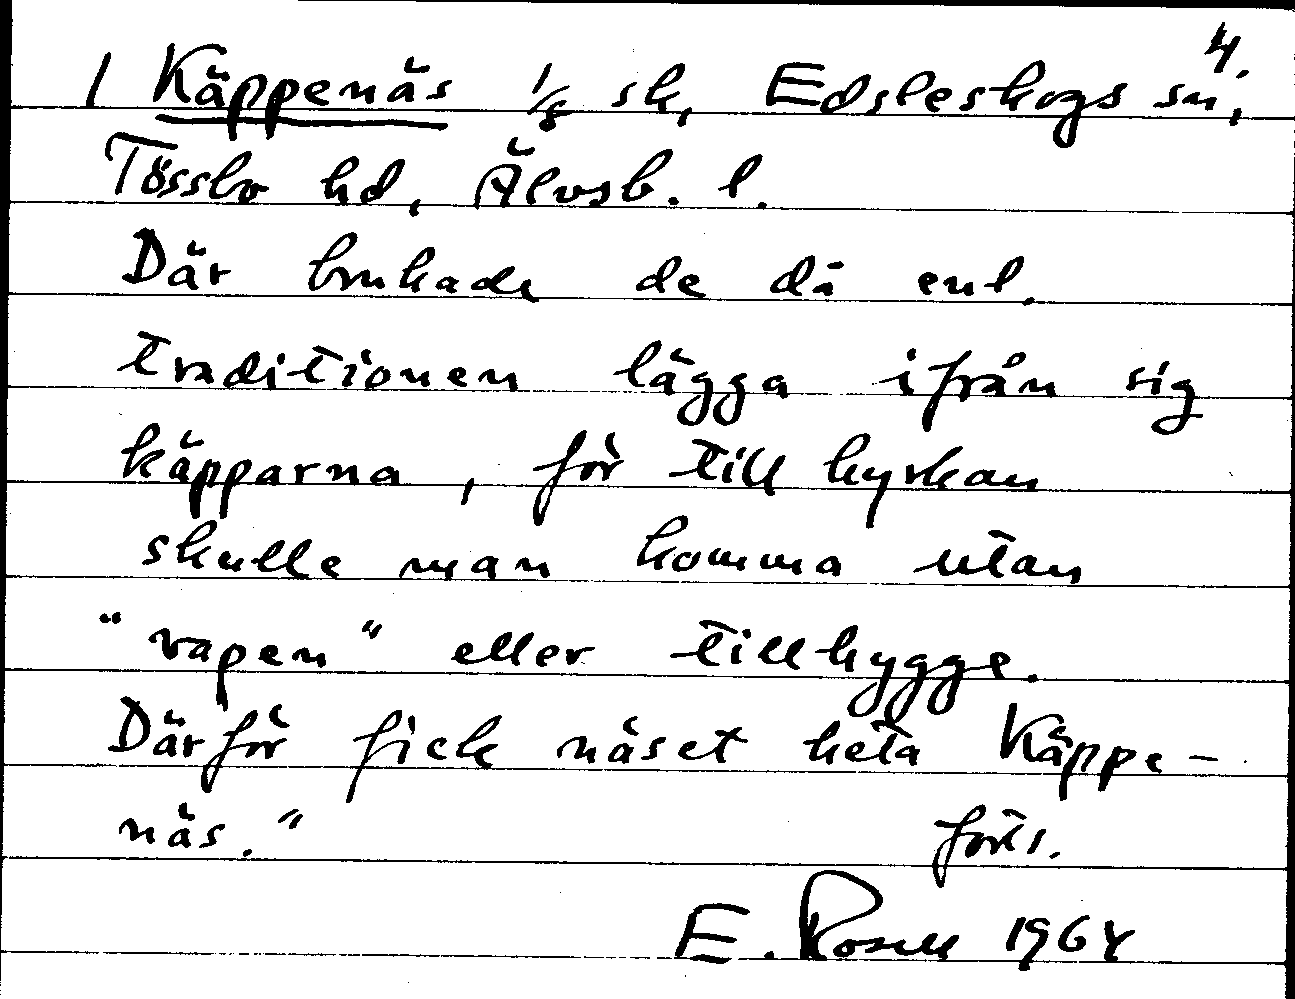 4.
1 Käppenäs 1/8 sk, Edsleskogs sn,
Tössbo hd, Älvsb. l.
Där brukade de då enl.
traditionen lägga ifrån sig
käpparna, för till kyrkan
skulle man komma utan
"vapen" eller tillhygge.
Därför fick näset heta Käppe-
näs." forts.
E. Rosell 1964